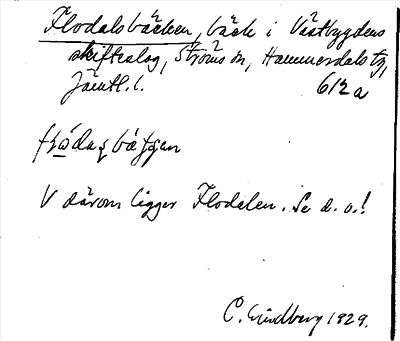 Flodalsbäcken, bäck i Västbygdens
skifteslag, Ströms sn, Hammerdals tg,
Jämtl. l. 612a
V därom ligger Flodalen. Se d. o.!
C. Lindberg 1929.